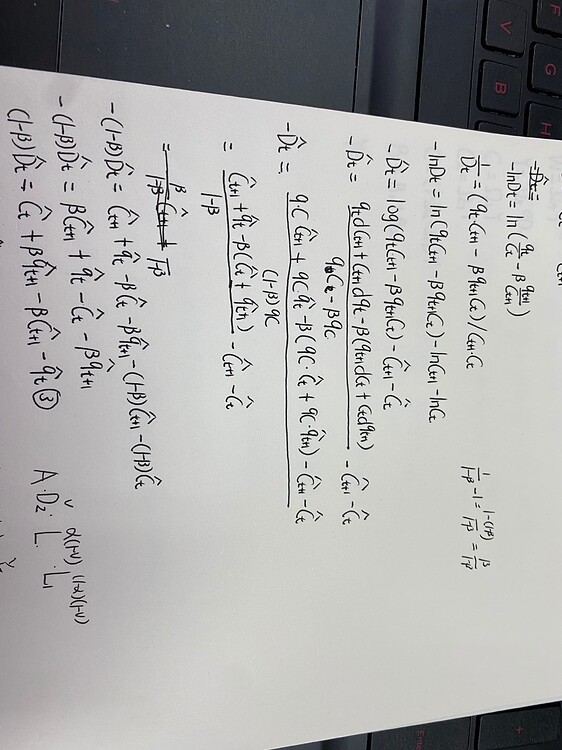 -D̂t =
-lnDt = ln(qt/Ct - β qt+1/Ct+1)
1/Dt = (qt·Ct+1 - β qt+1Ct)/Ct+1·Ct
-lnDt = ln(qtCt+1 - βqt+1Ct) - lnCt+1 - lnCt
-D̂t = log(qtCt+1 - βqt+1Ct) - Ĉt+1 - Ĉt
-D̂t = (qtdCt+1 + Ct+1dqt - β(qt+1dCt + Ctdqt+1))/(qC - βqC) - Ĉt+1 - Ĉt
-D̂t = (q·CĈt+1 + qCq̂t - β(qC·Ĉt + qC·q̂t+1))/((1-β)qC) - Ĉt+1 - Ĉt
= (Ĉt+1 + q̂t - β(Ĉt + q̂t+1))/(1-β) - Ĉt+1 - Ĉt
-(1-β)D̂t = Ĉt+1 + q̂t - βĈt - βq̂t+1 - (1-β)Ĉt+1 - (1-β)Ĉt
-(1-β)D̂t = βĈt+1 + q̂t - Ĉt - βq̂t+1
(1-β)D̂t = Ĉt + βq̂t+1 - βĈt+1 - q̂t ③
1/(1-β) - 1 = (1-(1-β))/(1-β) = β/(1-β)
A·D₂^ν·L^α(1-ν)·L₁^(1-α)(1-ν)
F
V
G
B
H